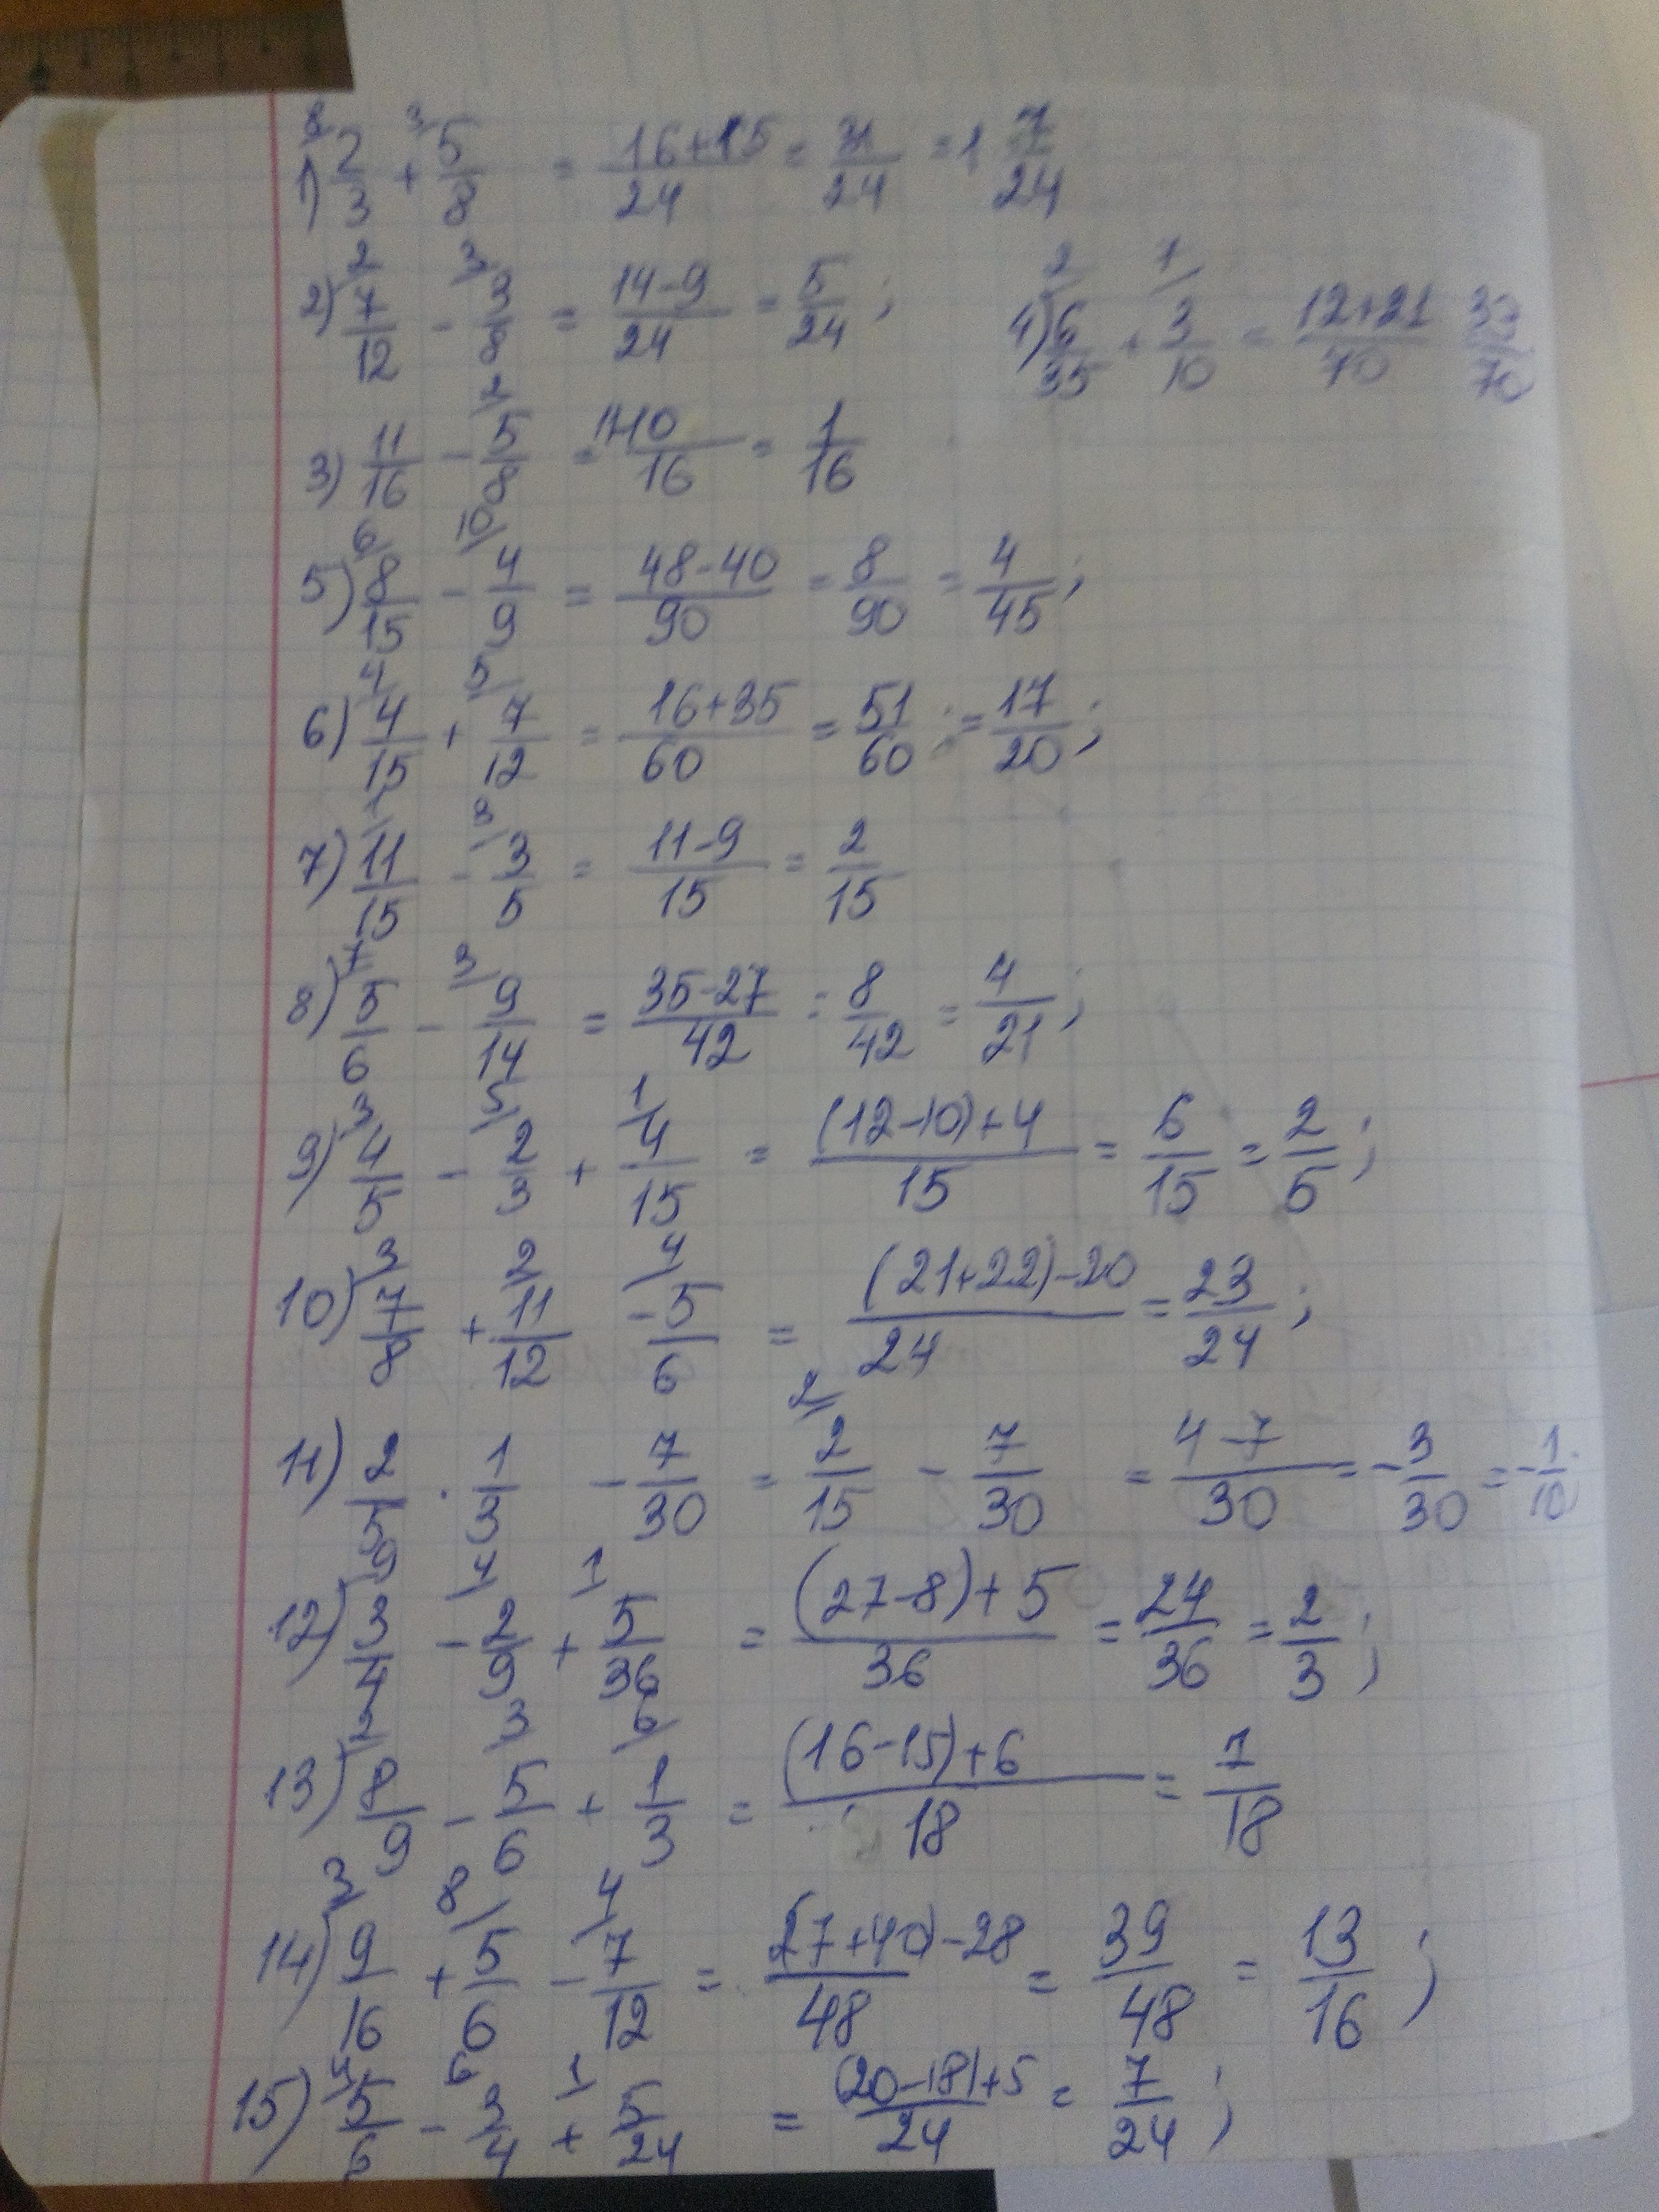 1) 8/ 2/3 + 3/ 5/8 = (16+15)/24 = 31/24 = 1 7/24
2) 2/ 7/12 - 3/ 3/8 = (14-9)/24 = 5/24;
4) 2/ 6/35 + 1/ 3/10 = (12+21)/70 33/70
3) 11/16 - 2/ 5/8 = (11-10)/16 = 1/16
5) 6/ 8/15 - 10/ 4/9 = (48-40)/90 = 8/90 = 4/45;
6) 4/ 4/15 + 5/ 7/12 = (16+35)/60 = 51/60; = 17/20;
7) 1/ 11/15 - 3/ 3/5 = (11-9)/15 = 2/15
8) 7/ 5/6 - 3/ 9/14 = (35-27)/42 = 8/42 = 4/21;
9) 3/ 4/5 - 5/ 2/3 + 1/ 4/15 = ((12-10)+4)/15 = 6/15 = 2/5;
10) 3/ 7/8 + 2/ 11/12 4/ -5/6 = ((21+22)-20)/24 = 23/24;
11) 2/5 · 1/3 - 7/30 = 2/ 2/15 - 7/30 = (4-7)/30 = -3/30 = -1/10
12) 9/ 3/4 - 4/ 2/9 + 1/ 5/36 = ((27-8)+5)/36 = 24/36 = 2/3;
13) 2/ 8/9 - 3/ 5/6 + 6/ 1/3 = ((16-15)+6)/18 = 7/18
14) 3/ 9/16 + 8/ 5/6 - 4/ 7/12 = ((27+40)-28)/48 = 39/48 = 13/16;
15) 4/ 5/6 - 6/ 3/4 + 1/ 5/24 = ((20-18)+5)/24 = 7/24;